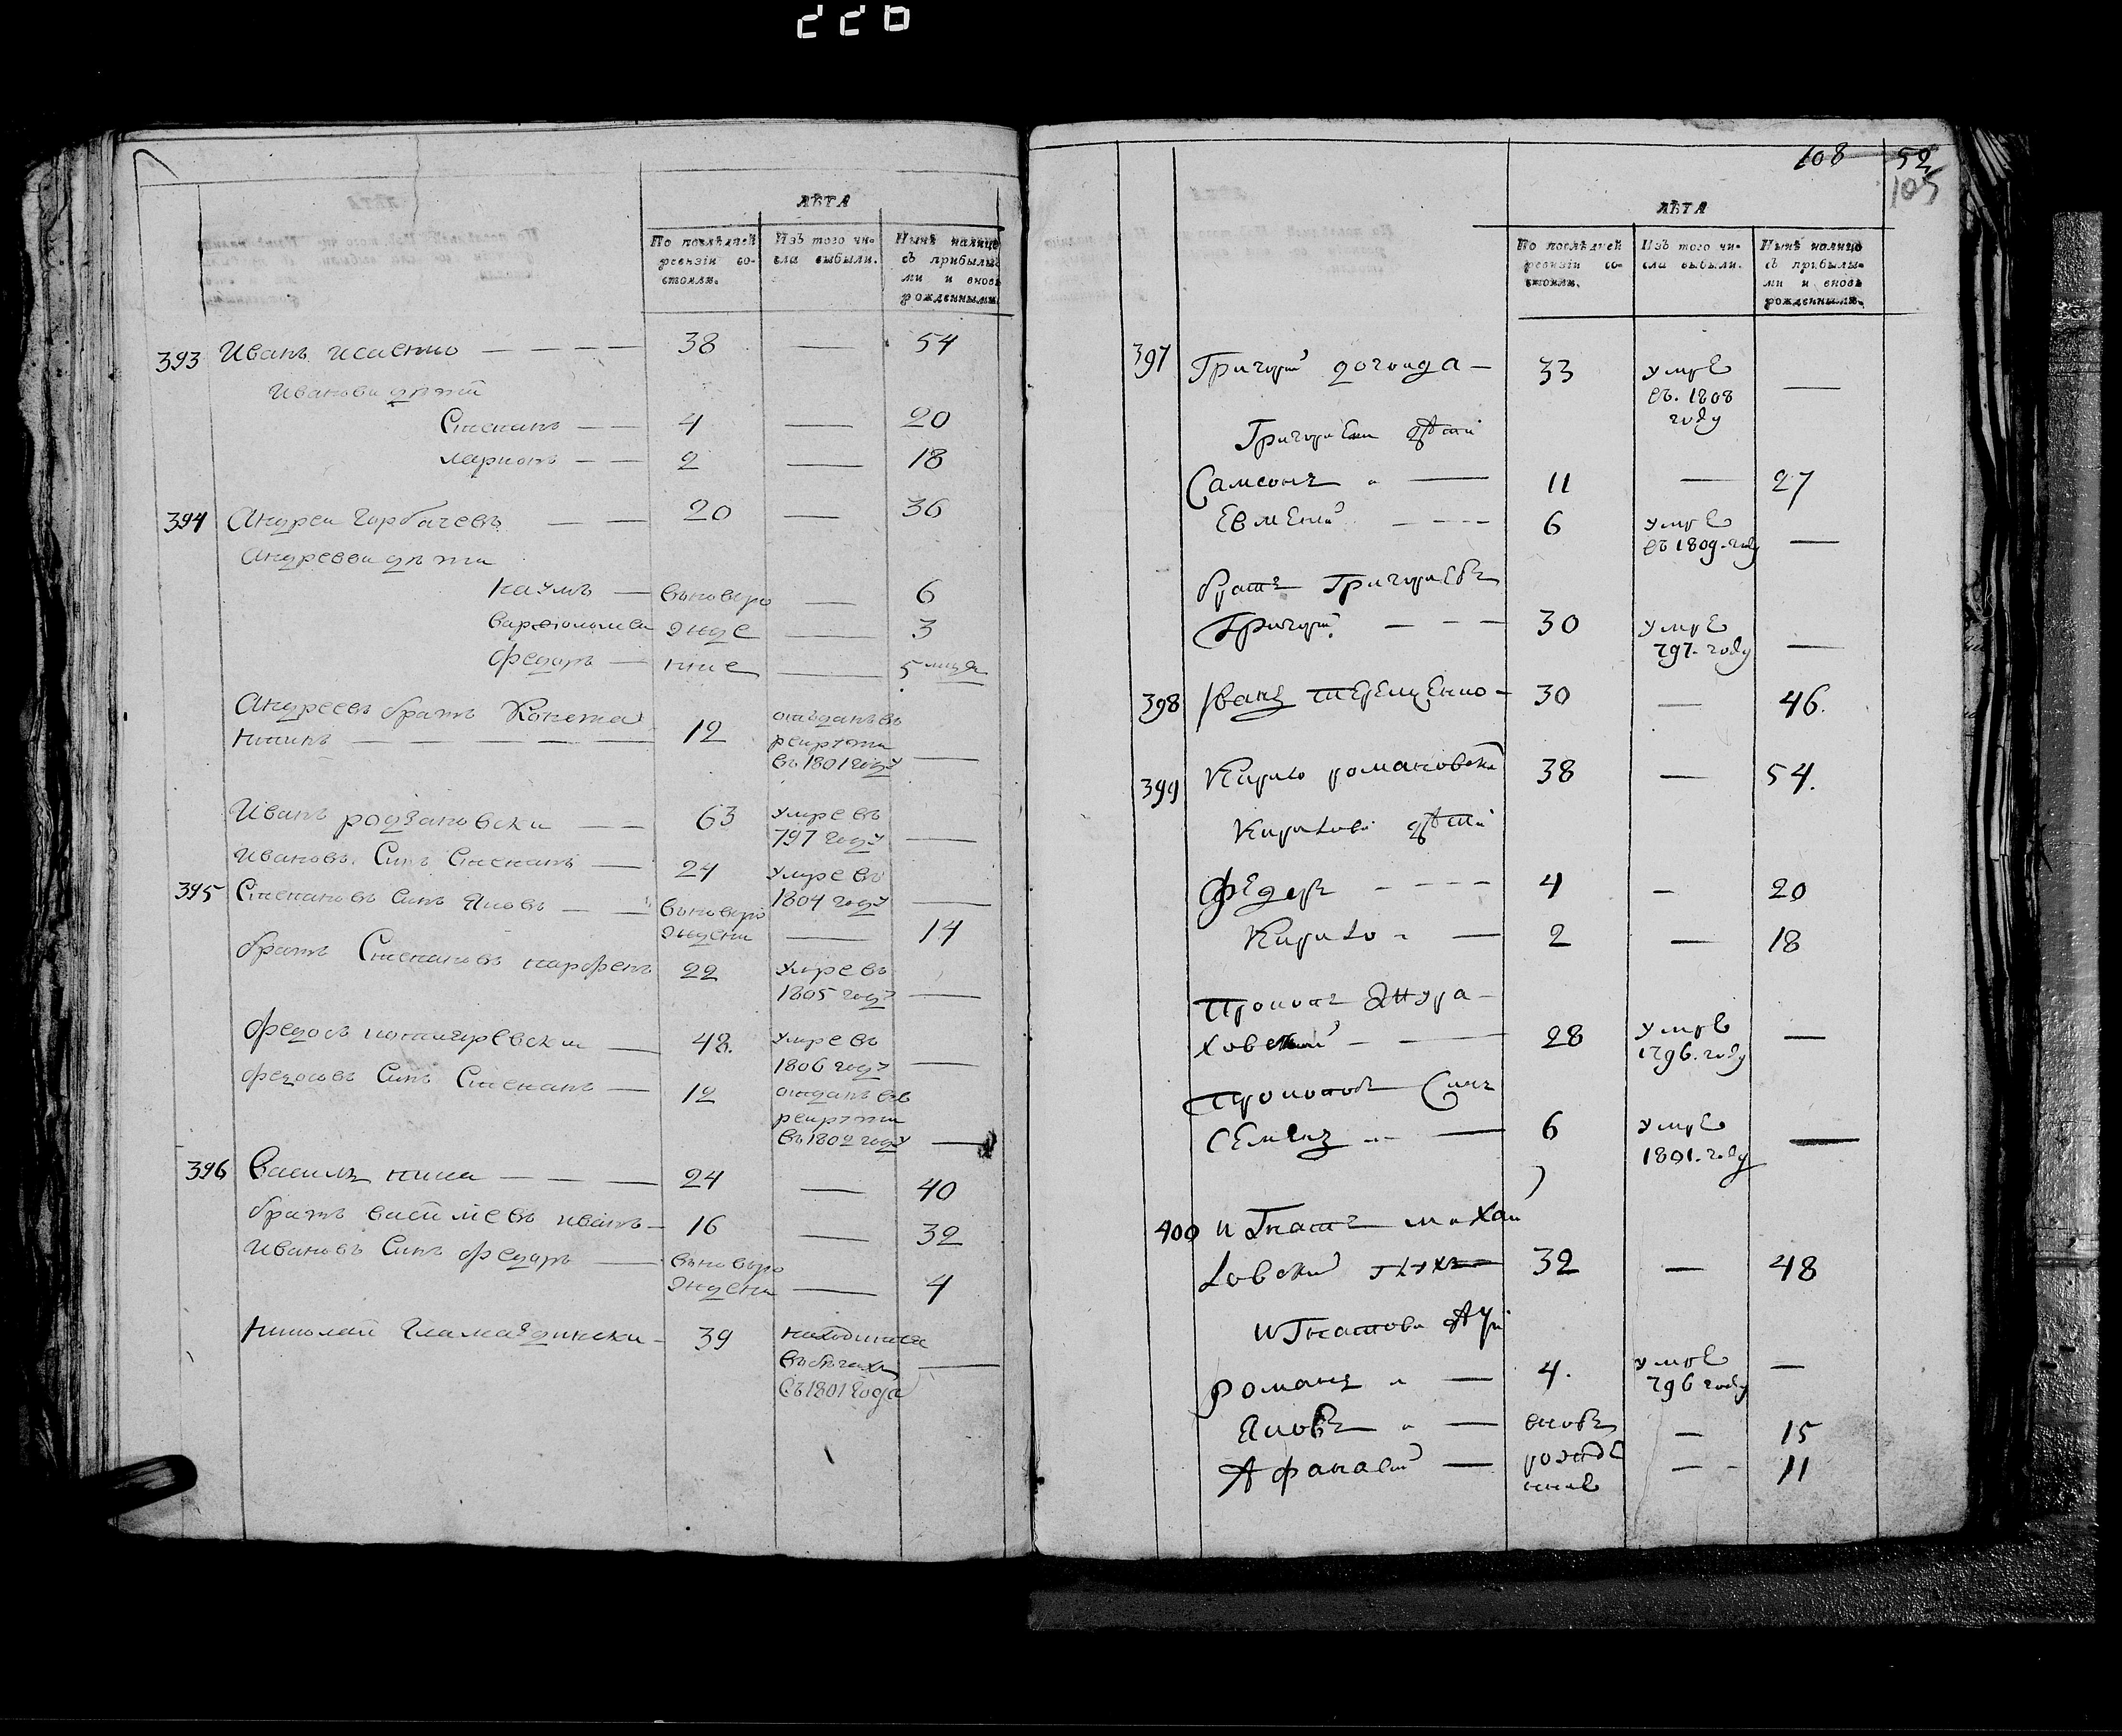 226
ЛѢТА
По послѣдней ревизіи состояли.
Изъ того числа выбыли.
Нынѣ налицо съ прибылыми и вновь рожденными
393 Иванъ исаенко — 38 — 54
Иванови дѣти
Степанъ — 4 — 20
ларионъ — 2 — 18
394 Андреи Горбачевъ — 20 — 36
Андрееви дѣти
наумъ — вьноворо — 6
варфоломеи жде — 3
Федоръ — ние — 5
Андреевъ братъ
12 отъданъ въ
рекрути
въ 1801 году —
Иванъ — 63 умре въ
797 году —
Ивановъ Синъ Степанъ — 24 умре въ
1804 году —
395 Степановъ Синъ Яковъ — вьноворо
ждени — 14
братъ Степановъ парфенъ 22 умре въ
1805 году —
Федось — 48. умре въ
1806 году —
Федосовъ Синъ Степанъ — 12 отданъ въ
рекрути
въ 1802 году —
396 Василь — 24 — 40
братъ василиевъ иванъ — 16 — 32
Ивановъ Синъ Федоръ — вьноворо
ждени — 4
Николай — 39 находится
въ бегах
съ 1801 года —
108 52
105
ЛѢТА
По послѣдней ревизіи состояли.
Изъ того числа выбыли.
Нынѣ налицо съ прибылыми и вновь рожденными.
397 Григорий — 33 умре
въ. 1808
году —
Григориеви дѣти
Самсонъ — 11 — 27
Евмений — 6 умре
въ 1809. году —
братъ Григориевъ
Григорий — 30 умре
797. году —
398 Іванъ терещенко — 30 — 46.
399 Кирило романовский 38 — 54.
Кирилови дѣти
Федоръ — 4 — 20
Кирило — 2 — 18
Прокопъ
28 умре
1796. году —
Прокоповъ Синъ
Семенъ — 6 умре
1801. году —
400 игнатъ михай
ловский 32 — 48
игнатови дѣти
романъ — 4. умре
796 году —
Яковъ — вновъ — 15
Афанасий — рожде — 11
ние